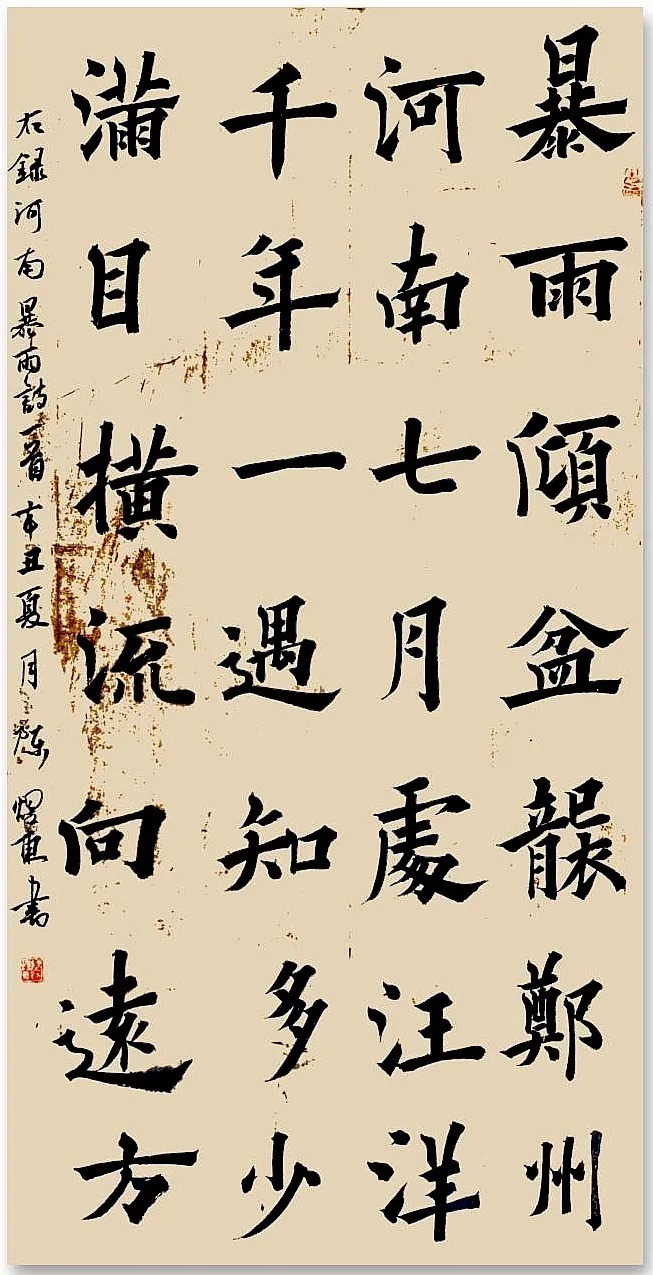 暴雨傾盆襲鄭州
河南七月處汪洋
千年一遇知多少
滿目橫流向遠方
右録河南暴雨詩一首辛丑夏月
書